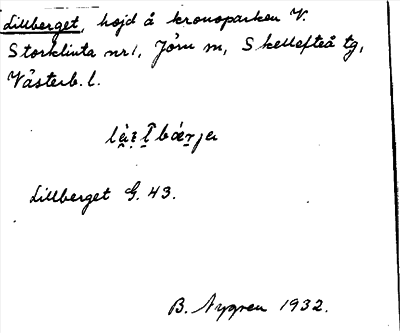 Lillberget, höjd å kronoparken V.
Storklinta nr 1, Jörn sn, Skellefteå tg,
Västerb. l.
Lillberget G. 43.
B. Nygren 1932.